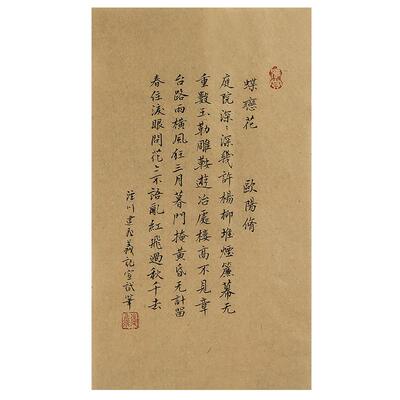 蝶戀花 歐陽脩
庭院深〻深幾許楊柳堆煙簾幕无
重數玉勒雕鞍遊冶處樓高不見章
台路雨橫風狂三月暮門掩黃昏无計留
春住淚眼問花〻不語亂紅飛過秋千去
川建義記宣試筆